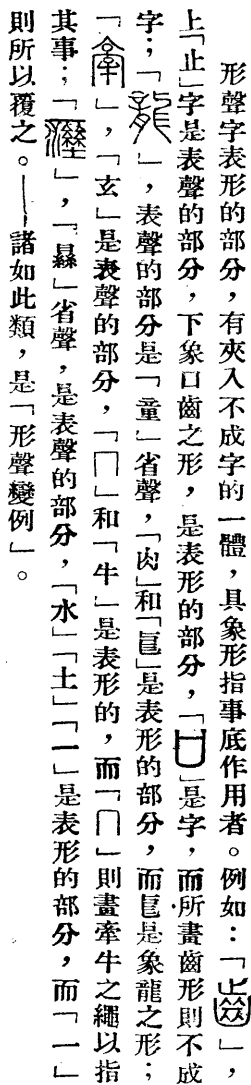 形聲字表形的部分，有夾入不成字的一體，具象形指事底作用者。例如：「齒」，
上「止」字是表聲的部分，下象口齒之形，是表形的部分，「凵」是字，而所畫齒形則不成
字；「龍」，表聲的部分是「童」省聲，「肉」和「㠯」是表形的部分，而㠯是象龍之形；
「牽」，「玄」是表聲的部分，「冂」和「牛」是表形的，而「冂」則畫牽牛之繩以指
其事；「溼」，「㬎」省聲，是表聲的部分，「水」「土」「一」是表形的部分，而「一」
則所以覆之。——諸如此類，是「形聲變例」。